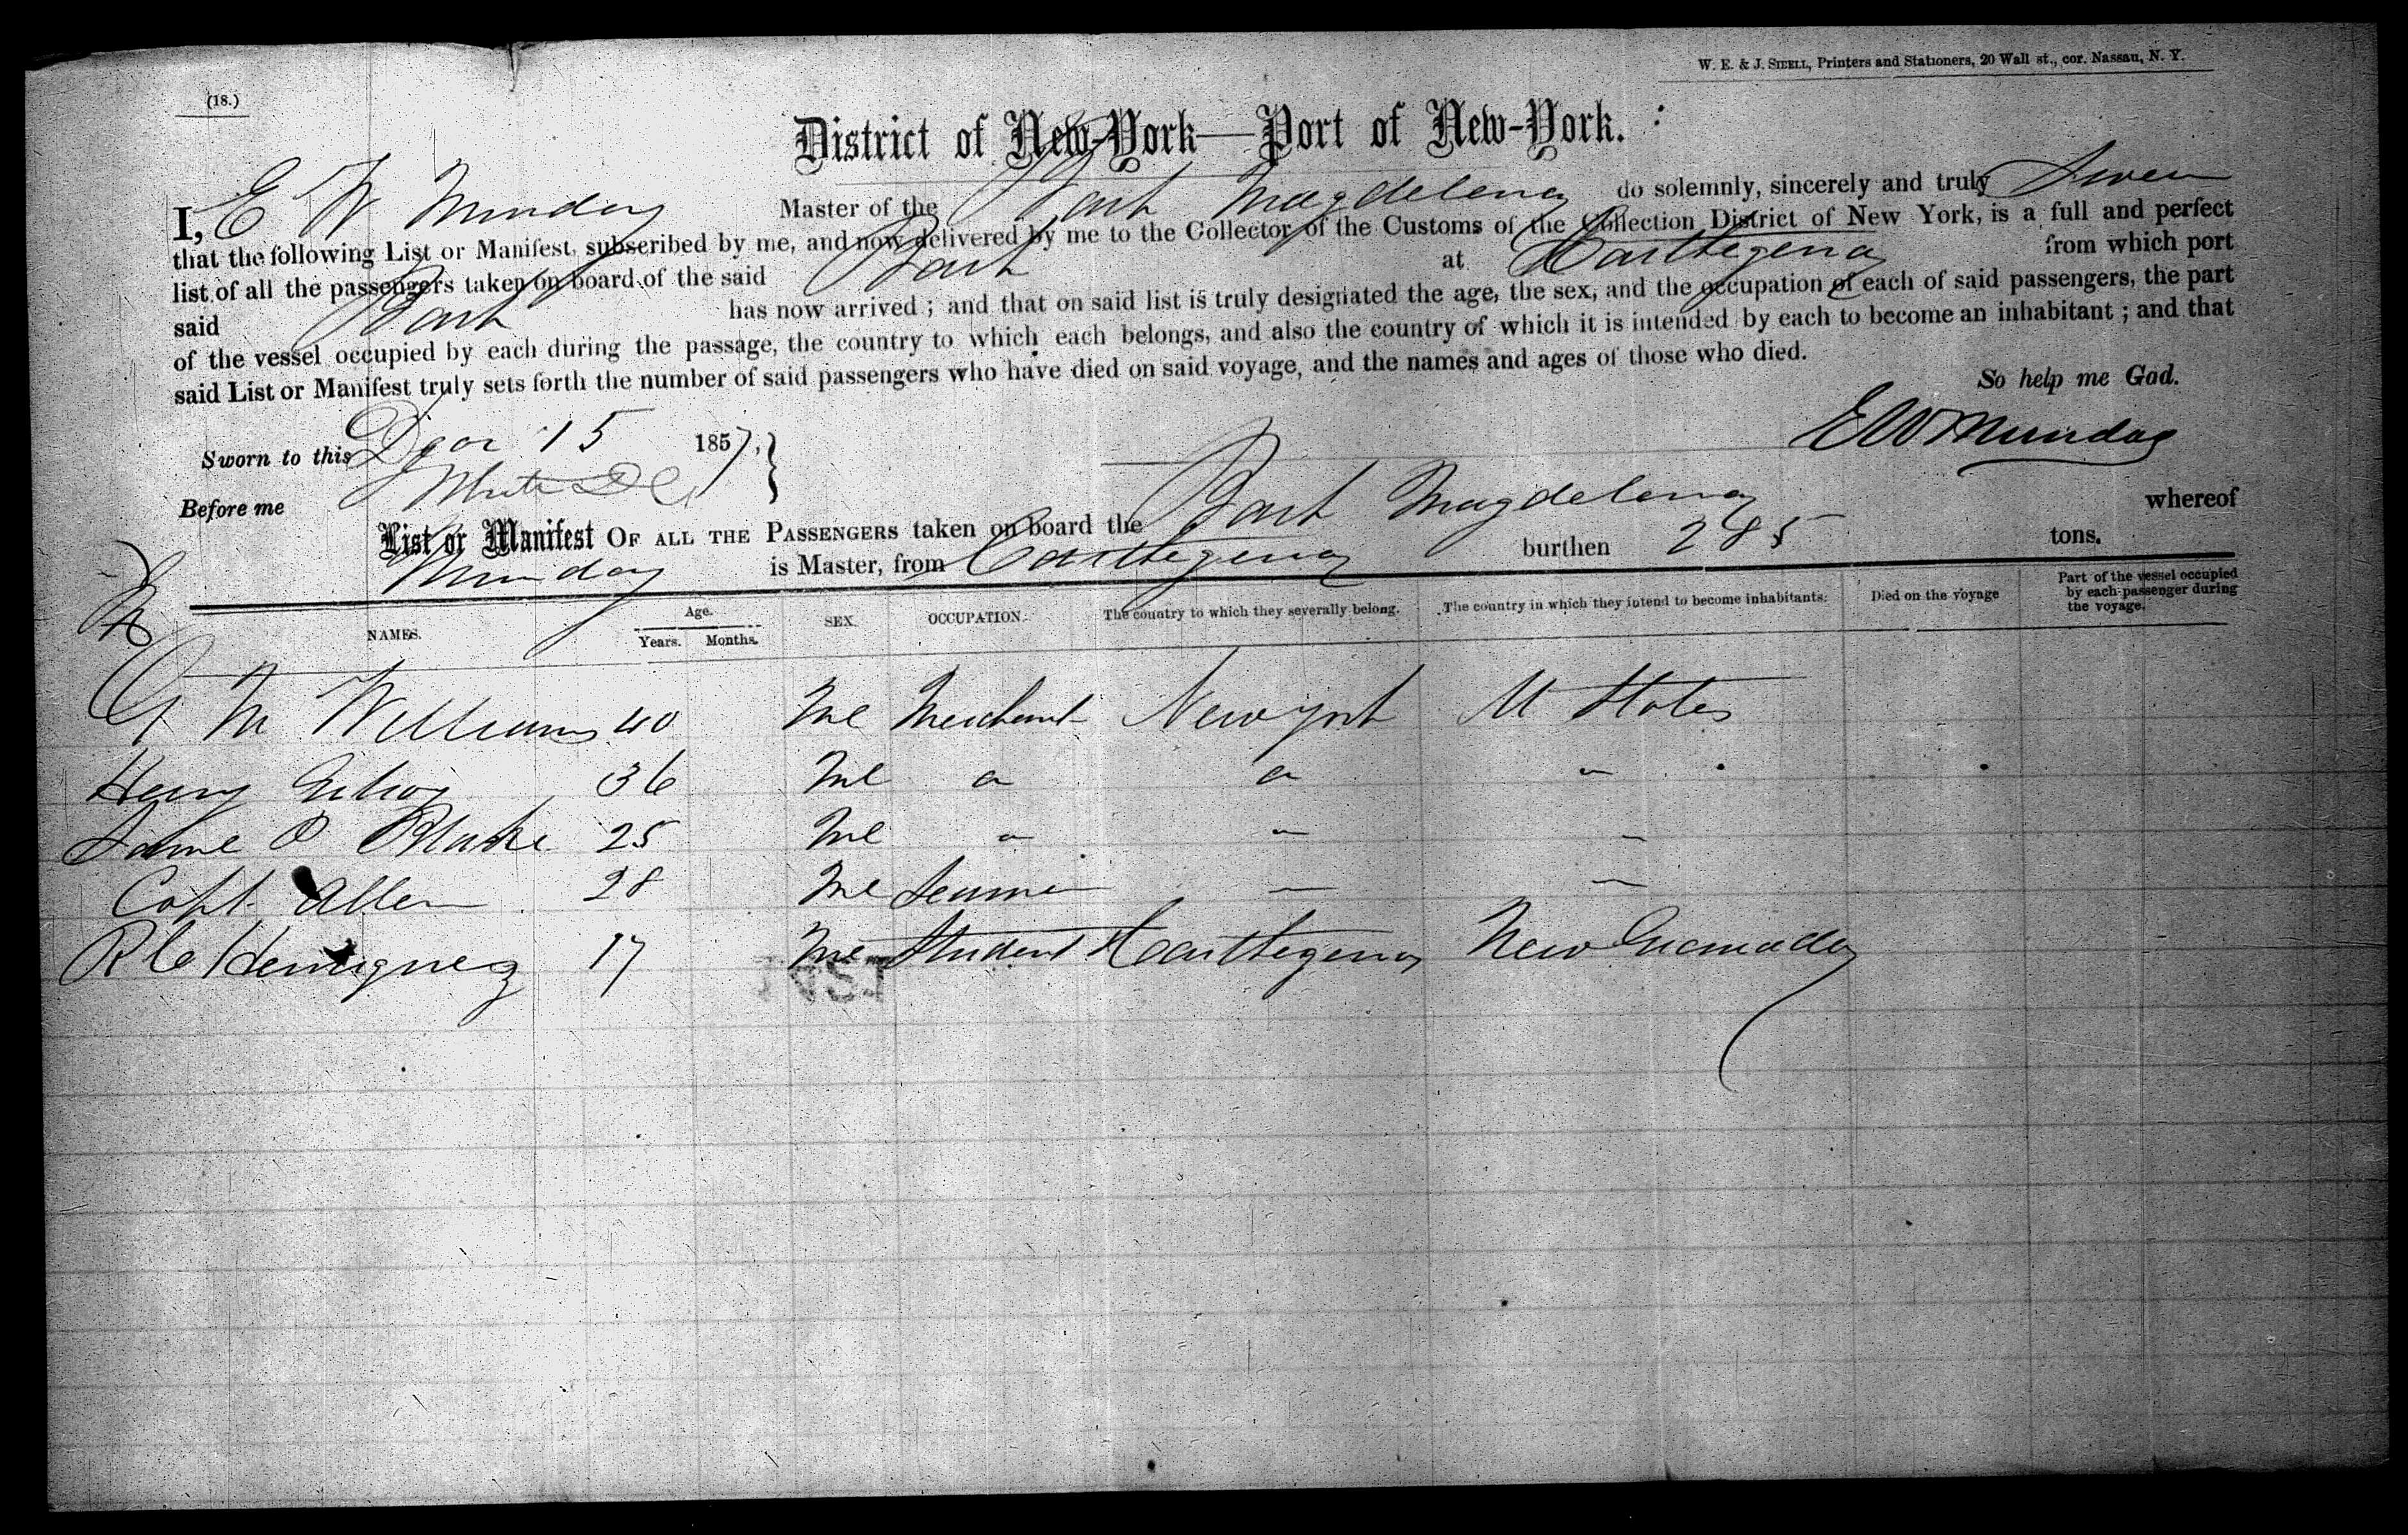 W. E. & J. SIBELL, Printers and Stationers, 20 Wall st., cor. Nassau, N. Y.
(18.)
District of New-York—Port of New-York.
I, E W Munday Master of the Bark Magdelena do solemnly, sincerely and truly Swear
that the following List or Manifest, subscribed by me, and now delivered by me to the Collector of the Customs of the Collection District of New York, is a full and perfect
list of all the passengers taken on board of the said Bark at Carthegena from which port
said Bark has now arrived ; and that on said list is truly designated the age, the sex, and the occupation of each of said passengers, the part
of the vessel occupied by each during the passage, the country to which each belongs, and also the country of which it is intended by each to become an inhabitant ; and that
said List or Manifest truly sets forth the number of said passengers who have died on said voyage, and the names and ages of those who died.
So help me God.
Sworn to this 15 1857, E W Munday
Before me
List or Manifest OF ALL THE PASSENGERS taken on board the Bark Magdelena whereof
Munday is Master, from Carthegena burthen 285 tons.
NAMES. Age. Years. Months. SEX. OCCUPATION. The country to which they severally belong. The country in which they intend to become inhabitants. Died on the voyage Part of the vessel occupied by each passenger during the voyage.
G M Williams 40 Me Merchant New york U States
Henry 36 Me " " "
P Blake 25 Me " " "
Capt. Allen 28 Me Seaman " "
R C Henriquez 17 Me Student Carthegena New Grenada